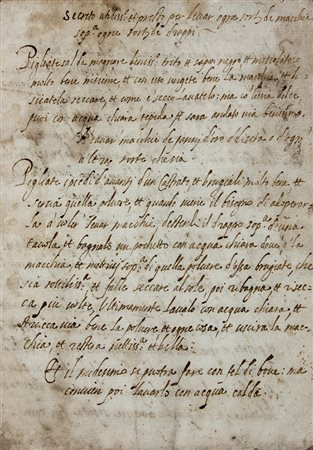 Secreto utiliss.o et presto per levar ogne sorte de macchie
sop.a ogne sorte de drappi
Pigliate sal da mangiare beniss.o trito et sapon negro et mescolate
molto bene insieme et con esso ungete bene la macchia, et la-
sciatela seccare, et come è secco lavatelo: ma co lissia dolce
poi con acqua chiara tepida et sarà andato via benissimo
A cavar macchie de panni d'oro, di seta e d'ogni
altra sorte che sia
Pigliate i piedi d'avanti d'un Castrato, et bruggiali molto bene et
serva quella polvere, et quando viene il bisogno di adoperar-
la o voler levar macchie, destendi il drappo sop.a d'una
tavola, et bagnalo un pochetto con acqua chiara dove è la
macchia, et metti sop.a di quella polvere d'ossa brugiate che
sia sottiliss.a et falle seccare al sole, poi ribagna et risec-
ca più volte, Ultimamente lavalo con acqua chiara, et
bene la polvere et ogne cosa, et uscirà la mac-
chia, et resterà nettiss.o et bella:
Et il medesimo si potrà fare con fel di bove: ma
convien poi lavarlo con acqua calda